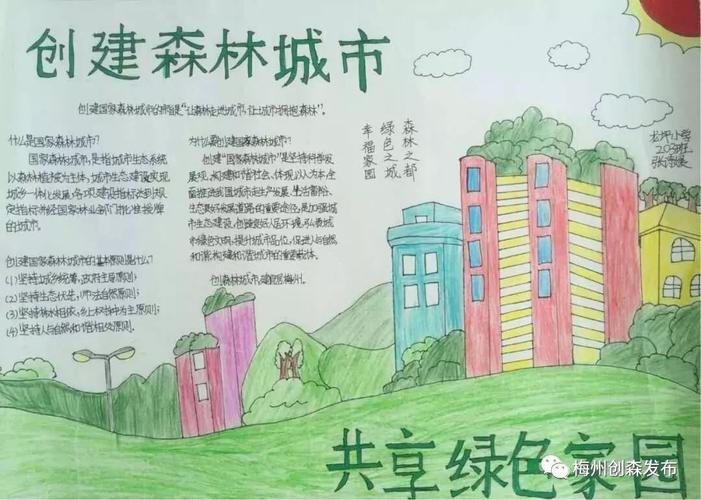 创建森林城市
创建国家森林城市的宗旨是“让森林走进城市,让城市拥抱森林”。
什么是国家森林城市?
国家森林城市,是指城市生态系统
以森林植被为主体,城市生态建设实现
城乡一体化发展,各项建设指标达到规
定指标并经国家林业部门批准授牌
的城市。
创建国家森林城市的基本原则是什么?
(1)坚持城乡统筹,政府主导原则;
(2)坚持生态优先,师法自然原则;
(3)坚持林水相依,乡土树种为主原则;
(4)坚持人与自然和谐相处原则.
为什么要创建国家森林城市?
创建“国家森林城市”是坚持科学发
展观,构建和谐社会,体现以人为本,全
面推进我国城市走生产发展,生活富裕、
生态良好发展道路的重要途径,是加强城
市生态建设,创造良好人居环境,弘扬城
市绿色文明,提升城市品位,促进人与自然
和谐,构建和谐城市的重要载体。
创森林城市,建 梅州.
森林之都
绿色之城
幸福家园
龙坪小学
203班
张
共享绿色家园
梅州创森发布